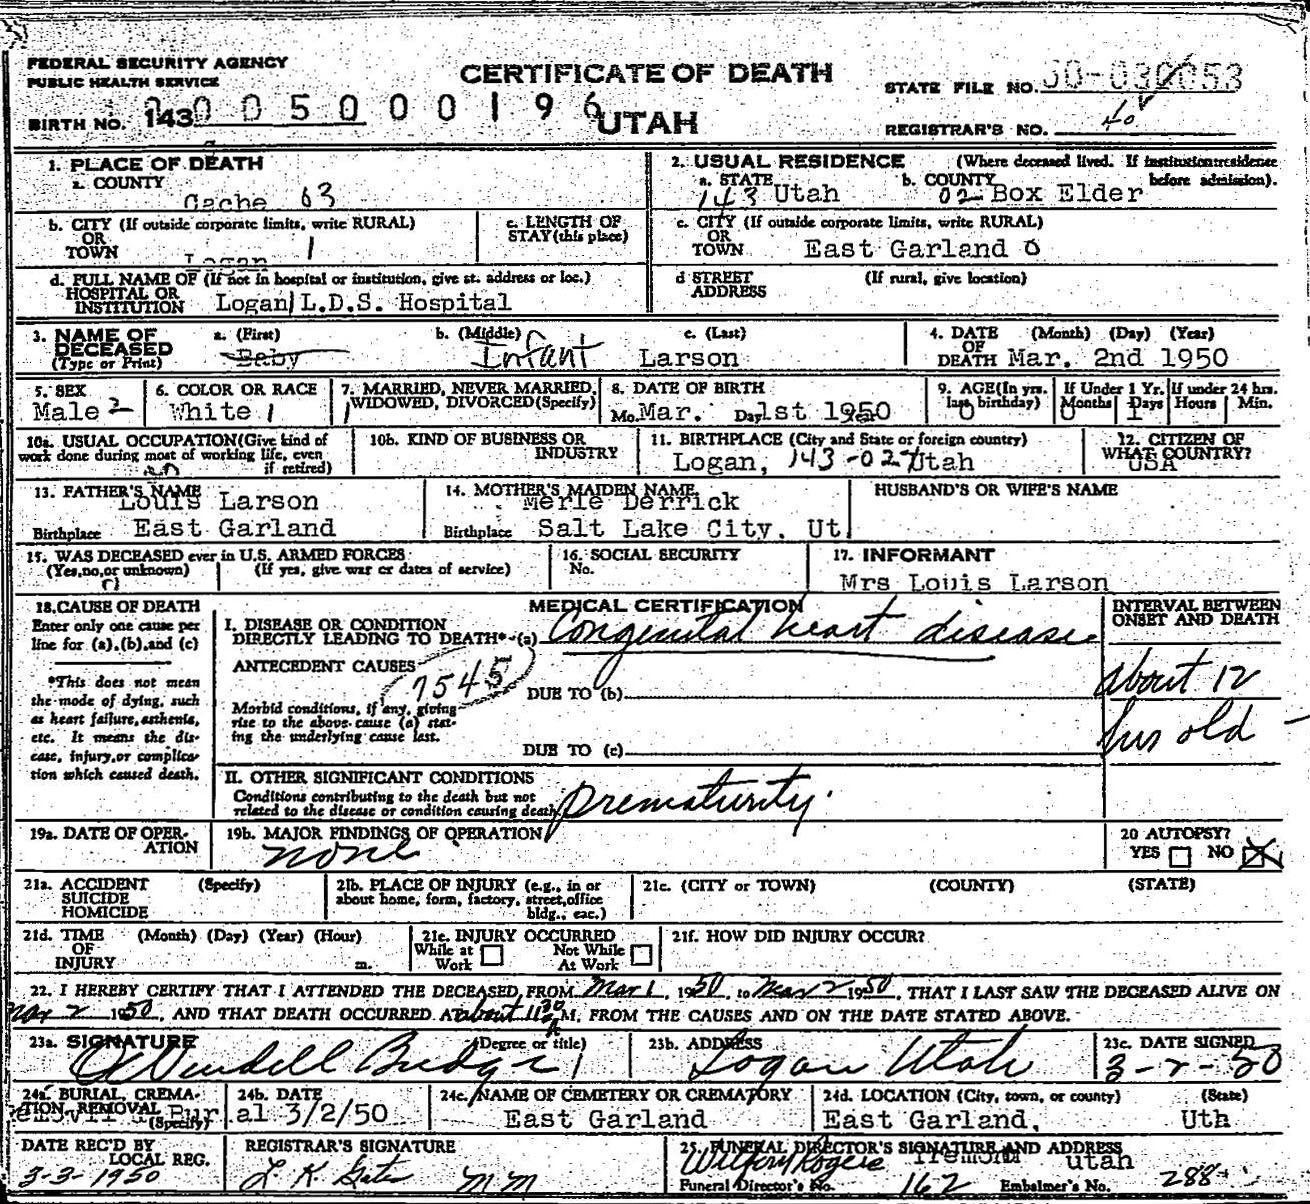 FEDERAL SECURITY AGENCY
PUBLIC HEALTH SERVICE
CERTIFICATE OF DEATH
UTAH
STATE FILE NO.
BIRTH NO. 143 005000196
REGISTRAR'S NO. 40
1. PLACE OF DEATH
a. COUNTY
Cache 63
2. USUAL RESIDENCE (Where deceased lived. If institution: residence before admission).
a. STATE
143 Utah
b. COUNTY
02 Box Elder
b. CITY (If outside corporate limits, write RURAL)
OR
TOWN
Logan 1
c. LENGTH OF
STAY (this place)
c. CITY (If outside corporate limits, write RURAL)
OR
TOWN
East Garland 0
d. FULL NAME OF (If not in hospital or institution, give st. address or loc.)
HOSPITAL OR
INSTITUTION
Logan L.D.S. Hospital
d STREET
ADDRESS
(If rural, give location)
3. NAME OF
DECEASED
(Type or Print)
a. (First)
Baby
b. (Middle)
Infant
c. (Last)
Larson
4. DATE
OF
DEATH
(Month) (Day) (Year)
Mar. 2nd 1950
5. SEX
Male 2
6. COLOR OR RACE
White 1
7. MARRIED, NEVER MARRIED,
WIDOWED, DIVORCED (Specify)
1
8. DATE OF BIRTH
Mo. Mar. Day 1st 1950
9. AGE (In yrs.
last birthday)
0
If Under 1 Yr.
Months Days
0 1
If under 24 hrs.
Hours Min.
10a. USUAL OCCUPATION (Give kind of
work done during most of working life, even
if retired)
10b. KIND OF BUSINESS OR
INDUSTRY
11. BIRTHPLACE (City and State or foreign country)
Logan, 143-027 Utah
12. CITIZEN OF
WHAT COUNTRY?
USA
13. FATHER'S NAME
Louis Larson
Birthplace East Garland
14. MOTHER'S MAIDEN NAME
Merle Derrick
Birthplace Salt Lake City, Ut.
HUSBAND'S OR WIFE'S NAME
15. WAS DECEASED ever in U.S. ARMED FORCES
(Yes, no, or unknown) (If yes, give war or dates of service)
0
16. SOCIAL SECURITY
No.
17. INFORMANT
Mrs Louis Larson
18. CAUSE OF DEATH
Enter only one cause per
line for (a), (b), and (c)
*This does not mean
the mode of dying, such
as heart failure, asthenia,
etc. It means the dis-
ease, injury, or complica-
tion which caused death.
MEDICAL CERTIFICATION
I. DISEASE OR CONDITION
DIRECTLY LEADING TO DEATH*-(a) Congenital heart disease
ANTECEDENT CAUSES
7545
Morbid conditions, if any, giving
rise to the above cause (a) stat-
ing the underlying cause last.
DUE TO (b)
DUE TO (c)
INTERVAL BETWEEN
ONSET AND DEATH
about 12
hrs old
II. OTHER SIGNIFICANT CONDITIONS
Conditions contributing to the death but not
related to the disease or condition causing death.
Prematurity.
19a. DATE OF OPER-
ATION
19b. MAJOR FINDINGS OF OPERATION
none
20 AUTOPSY?
YES NO X
21a. ACCIDENT
SUICIDE
HOMICIDE
(Specify)
21b. PLACE OF INJURY (e.g., in or
about home, form, factory, street, office
bldg., eac.)
21c. (CITY or TOWN) (COUNTY) (STATE)
21d. TIME
OF
INJURY
(Month) (Day) (Year) (Hour)
m.
21e. INJURY OCCURRED
While at Work
Not While At Work
21f. HOW DID INJURY OCCUR?
22. I HEREBY CERTIFY THAT I ATTENDED THE DECEASED FROM Mar 1, 1950, to Mar 2 1950, THAT I LAST SAW THE DECEASED ALIVE ON
Mar 2 1950, AND THAT DEATH OCCURRED AT about 11 30 A M, FROM THE CAUSES AND ON THE DATE STATED ABOVE.
23a. SIGNATURE (Degree or title)
O Wendell Budge
23b. ADDRESS
Logan Utah
23c. DATE SIGNED
3-2-50
24a. BURIAL, CREMA-
TION, REMOVAL
(Specify)
Burial
24b. DATE
3/2/50
24c. NAME OF CEMETERY OR CREMATORY
East Garland
24d. LOCATION (City, town, or county) (State)
East Garland, Uth
DATE REC'D BY
LOCAL REG.
3-3-1950
REGISTRAR'S SIGNATURE
mm
25. FUNERAL DIRECTOR'S SIGNATURE AND ADDRESS
Rogers Utah
Funeral Director's No. 162 Embalmer's No. 288